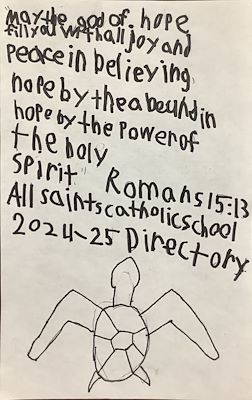 "may the god of hope
fill you with all joy and
peace in believing
hope by the abeund in
hope by the power of
the holy
spirit Romans 15:13
All saints catholic school
2024-25 Directory